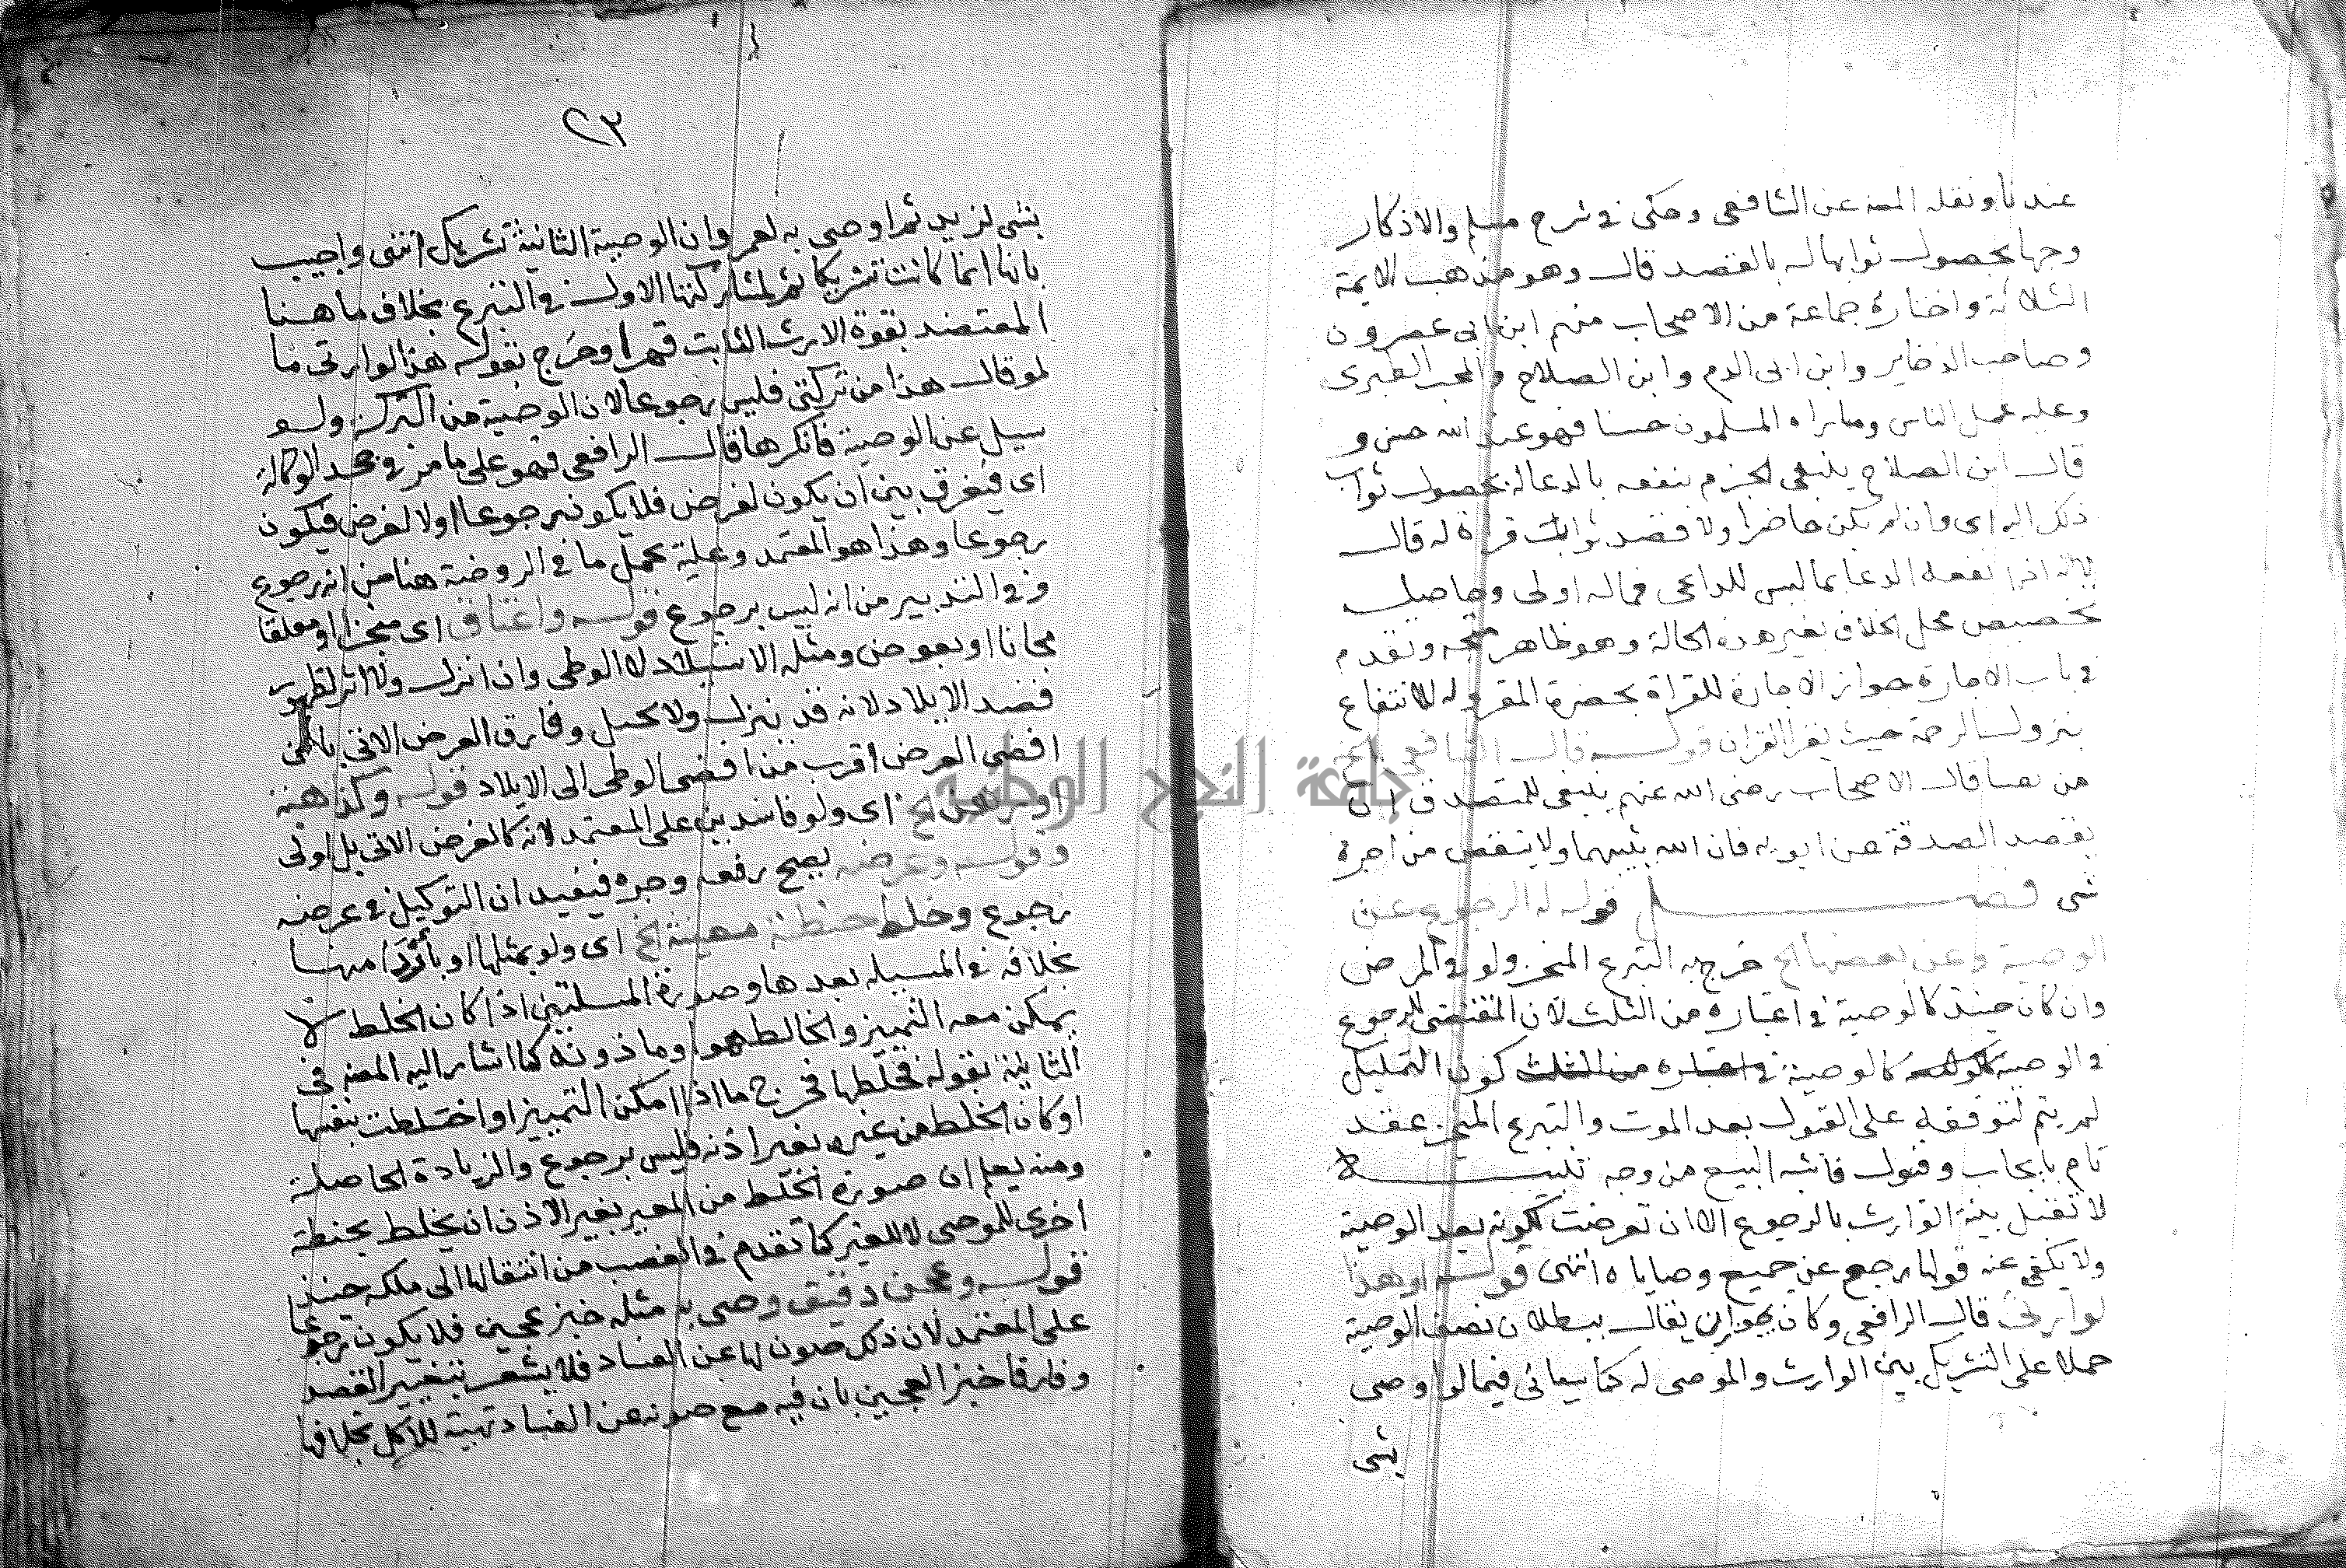 عندنا ونقله المص عن الشافعى وحكى فى شرح مسلم والاذكار
وجها بحصول ثوابها له بالقصد قال وهو مذهب الايمة
الثلاثة واختاره جماعة من الاصحاب منهم ابن ابى عصرون
وصاحب الذخاير وابن ابى الدم وابن الصلاح والمحب الطبرى
وعليه عمل الناس وماراه المسلمون حسنا فهو عند الله حسن و
قال ابن الصلاح ينبغى الجزم بنفعه بالدعا له بحصول ثواب
ذلك اليه اى وان لم يكن حاضرا ولا قصد ثوابك قراة له قال
لانه اذا نفعه الدعا بما ليس للداعى فماله اولى وحاصله
تخصيص محل الخلاف بغير هذه الحالة وهو ظاهر متجه وتقدم
فى باب الاجارة جواز الاجارة للقراة بحضرة المقرو له للانتفاع
بنزول الرحمة حيث يقرا القران قوله قال الشافعى الخ
من بعضا قال الاصحاب رضى الله عنهم ينبغى للمتصدق ان
يقصد الصدقة عن ابويه فان الله يثيبهما ولا ينقص من اجره
شى فصل قوله له الرجوع عن
الوصية وعن بعضها الخ خرج به التبرع المنجز ولو فى المرض
وان كان حينيذ كالوصية فى اعتباره من الثلث لان المقتضى للرجوع
فى الوصية كالوصية فى اعتباره من الثلث كون التمليك
لم يتم لتوقفه على القبول بعد الموت والتبرع المنجز عقد
تام بايجاب وقبول فاشبه البيع من وجه تنبيه
لا تقبل بينة الوارث بالرجوع الا ان تعرضت لكونه بعد الوصية
ولا يكفى عنه قولها رجع عن جميع وصاياه انتهى قوله او هذا
لوارثى قال الرافعى وكان يجوز ان يقال ببطلان نصف الوصية
حملا على التشريك بين الوارث والموصى له كما سياتى فيما لو اوصى
بشى
٢٣
بشى لزيد ثم اوصى به لعمرو ان الوصية الثانية تشريك انتهى واجيب
بانها انما كانت تشريكا ثم لمشاركتها الاولى فى التبرع بخلاف ما هنا
المعتضد بقوة الارث الثابت قهرا وخرج بقوله هذا لوارثى ما
لو قال هذا من تركتى فليس رجوعا لان الوصية من التركة ولو
سيل عن الوصية فانكرها قال الرافعى فهو على ما مر فى جحد الوكالة
اى فيفرق بين ان يكون لغرض فلا يكون رجوعا او لا لغرض فيكون
رجوعا وهذا هو المعتمد وعليه يحمل ما فى الروضة هنا من انه رجوع
وفى التدبير من انه ليس برجوع قوله واعتاق اى منجزا او معلقا
مجانا او بعوض ومثله الاستيلاد لا الوطى وان انزل ولا اثر لظهور
قصد الايلاد لانه قد ينزل ولا يحبل وفارق العرض الاتى بان
افضى العرض اقرب من افضى الوطى الى الايلاد قوله وكذا هبة
او رهن الخ اى ولو فاسدين على المعتمد لانه كالعرض الاتى بل اولى
وقوله وعرضه يصح رفعه وجره فيفيد ان التوكيل فى عرضه
رجوع وخلط حنطة معينة الخ اى ولو بمثلها او باردا منها
بخلافه فى المسيلة بعدها وصورة المسلتين اذا كان الخلط لا
يمكن معه التمييز والخالط هو او ماذونه كما اشار اليه المص فى
الثانية بقوله فخلطها فخرج ما اذا امكن التمييز او اختلطت بنفسها
او كان الخلط من غيره بغير اذنه فليس برجوع والزيادة الحاصلة
ومنه يعلم ان صورة الخلط من الغير بغير الاذن ان يخلط بحنطة
اخرى للموصى لا للغير كما تقدم فى الغصب من انتقالها الى ملكه حينيذ
قوله وعجن دقيق وصى به مثله خبز عجين فلا يكون رجوعا
على المعتمد لان ذلك صون لها عن الفساد فلا يشعر بتغيير القصد
وفارقا خبز العجين بان فيه مع صونه عن الفساد تهيئة للاكل بخلافها
جامعة النجاح الوطنية